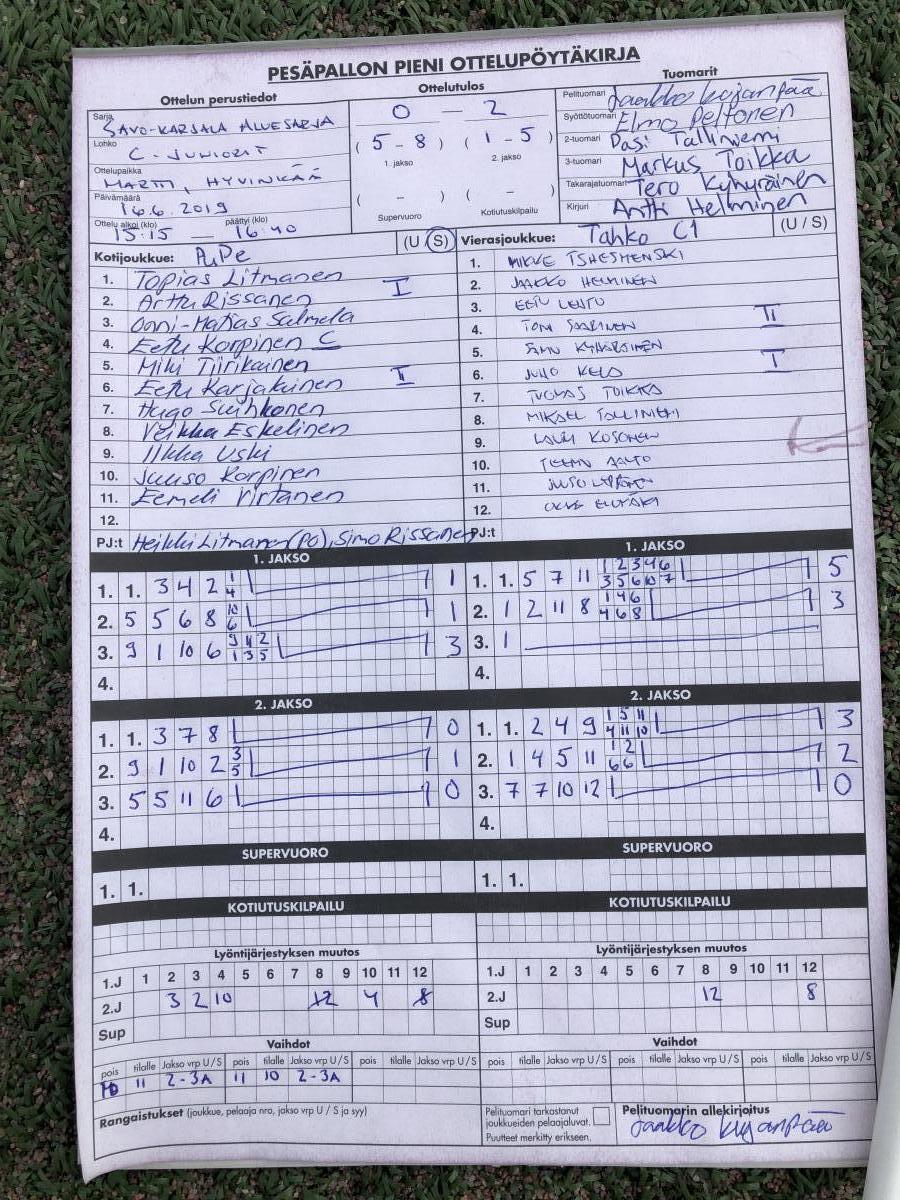 PESÄPALLON PIENI OTTELUPÖYTÄKIRJA
Ottelun perustiedot
Sarja SAVO-KARJALA ALUESARJA
Lohko C-JUNIORIT
Ottelupaikka MARTTI, HYVINKÄÄ
Päivämäärä 16.6.2019
Ottelu alkoi (klo) 15:15 – päättyi (klo) 16:40
Ottelutulos
0 – 2
(5 – 8) (1 – 5)
1. jakso 2. jakso
( – ) ( – )
Supervuoro Kotiutuskilpailu
Tuomarit
Pelituomari Jaakko Kujanpää
Syöttötuomari Elmo Peltonen
2-tuomari Pasi Talliniemi
3-tuomari Markus Toikka
Takarajatuomari Tero Kyhyräinen
Kirjuri Antti Helminen
Kotijoukkue: PuPe (U / S)
1. Topias Litmanen
2. Arttu Rissanen I
3. Onni-Matias Salmela
4. Eetu Korpinen C
5. Miki Tiirikainen
6. Eetu Karjakainen II
7. Hugo Suihkonen
8. Veikka Eskelinen
9. Ilkka Uski
10. Juuso Korpinen
11. Eemeli Virtanen
12.
PJ:t Heikki Litmanen (PO), Simo Rissanen
Vierasjoukkue: Tahko C1 (U / S)
1. MIKVE TSHESMENSKI
2. JAAKKO HELMINEN
3. EETU LEHTO
4. TONI SAARINEN II
5. KYHYRÄINEN
6. JUHO KELO I
7. TUOMAS TOIKKA
8. MIKAEL TALLINIEMI
9. LAURI KOSONEN
10. TEEMU AALTO
11.
12.
PJ:t
1. JAKSO
1. 1. 3 4 2 1 1
4
2. 5 5 6 8 10 1
6
3. 9 1 10 6 9 11 2 3
1 3 5
4.
1. JAKSO
1. 1. 5 7 11 1 2 3 4 6 5
3 5 6 10 7
2. 1 2 11 8 1 4 6 3
4 6 8
3. 1
4.
2. JAKSO
1. 1. 3 7 8 0
2. 9 1 10 2 3 1
5
3. 5 5 11 6 0
4.
2. JAKSO
1. 1. 2 4 9 1 5 11 3
4 11 10
2. 1 4 5 11 1 2 2
6 6
3. 7 7 10 12 0
4.
SUPERVUORO
1. 1.
SUPERVUORO
1. 1.
KOTIUTUSKILPAILU
KOTIUTUSKILPAILU
Lyöntijärjestyksen muutos
1.J 1 2 3 4 5 6 7 8 9 10 11 12
2.J 3 2 10 12 4 8
Sup
Lyöntijärjestyksen muutos
1.J 1 2 3 4 5 6 7 8 9 10 11 12
2.J 12 8
Sup
Vaihdot
pois tilalle Jakso vrp U / S pois tilalle Jakso vrp U / S pois tilalle Jakso vrp U / S
10 11 2-3A 11 10 2-3A
Vaihdot
pois tilalle Jakso vrp U / S pois tilalle Jakso vrp U / S pois tilalle Jakso vrp U / S
Rangaistukset (joukkue, pelaaja nro, jakso vrp U / S ja syy)
Pelituomari tarkastanut
joukkueiden pelaajaluvat.
Puutteet merkitty erikseen.
Pelituomarin allekirjoitus
Jaakko Kujanpää